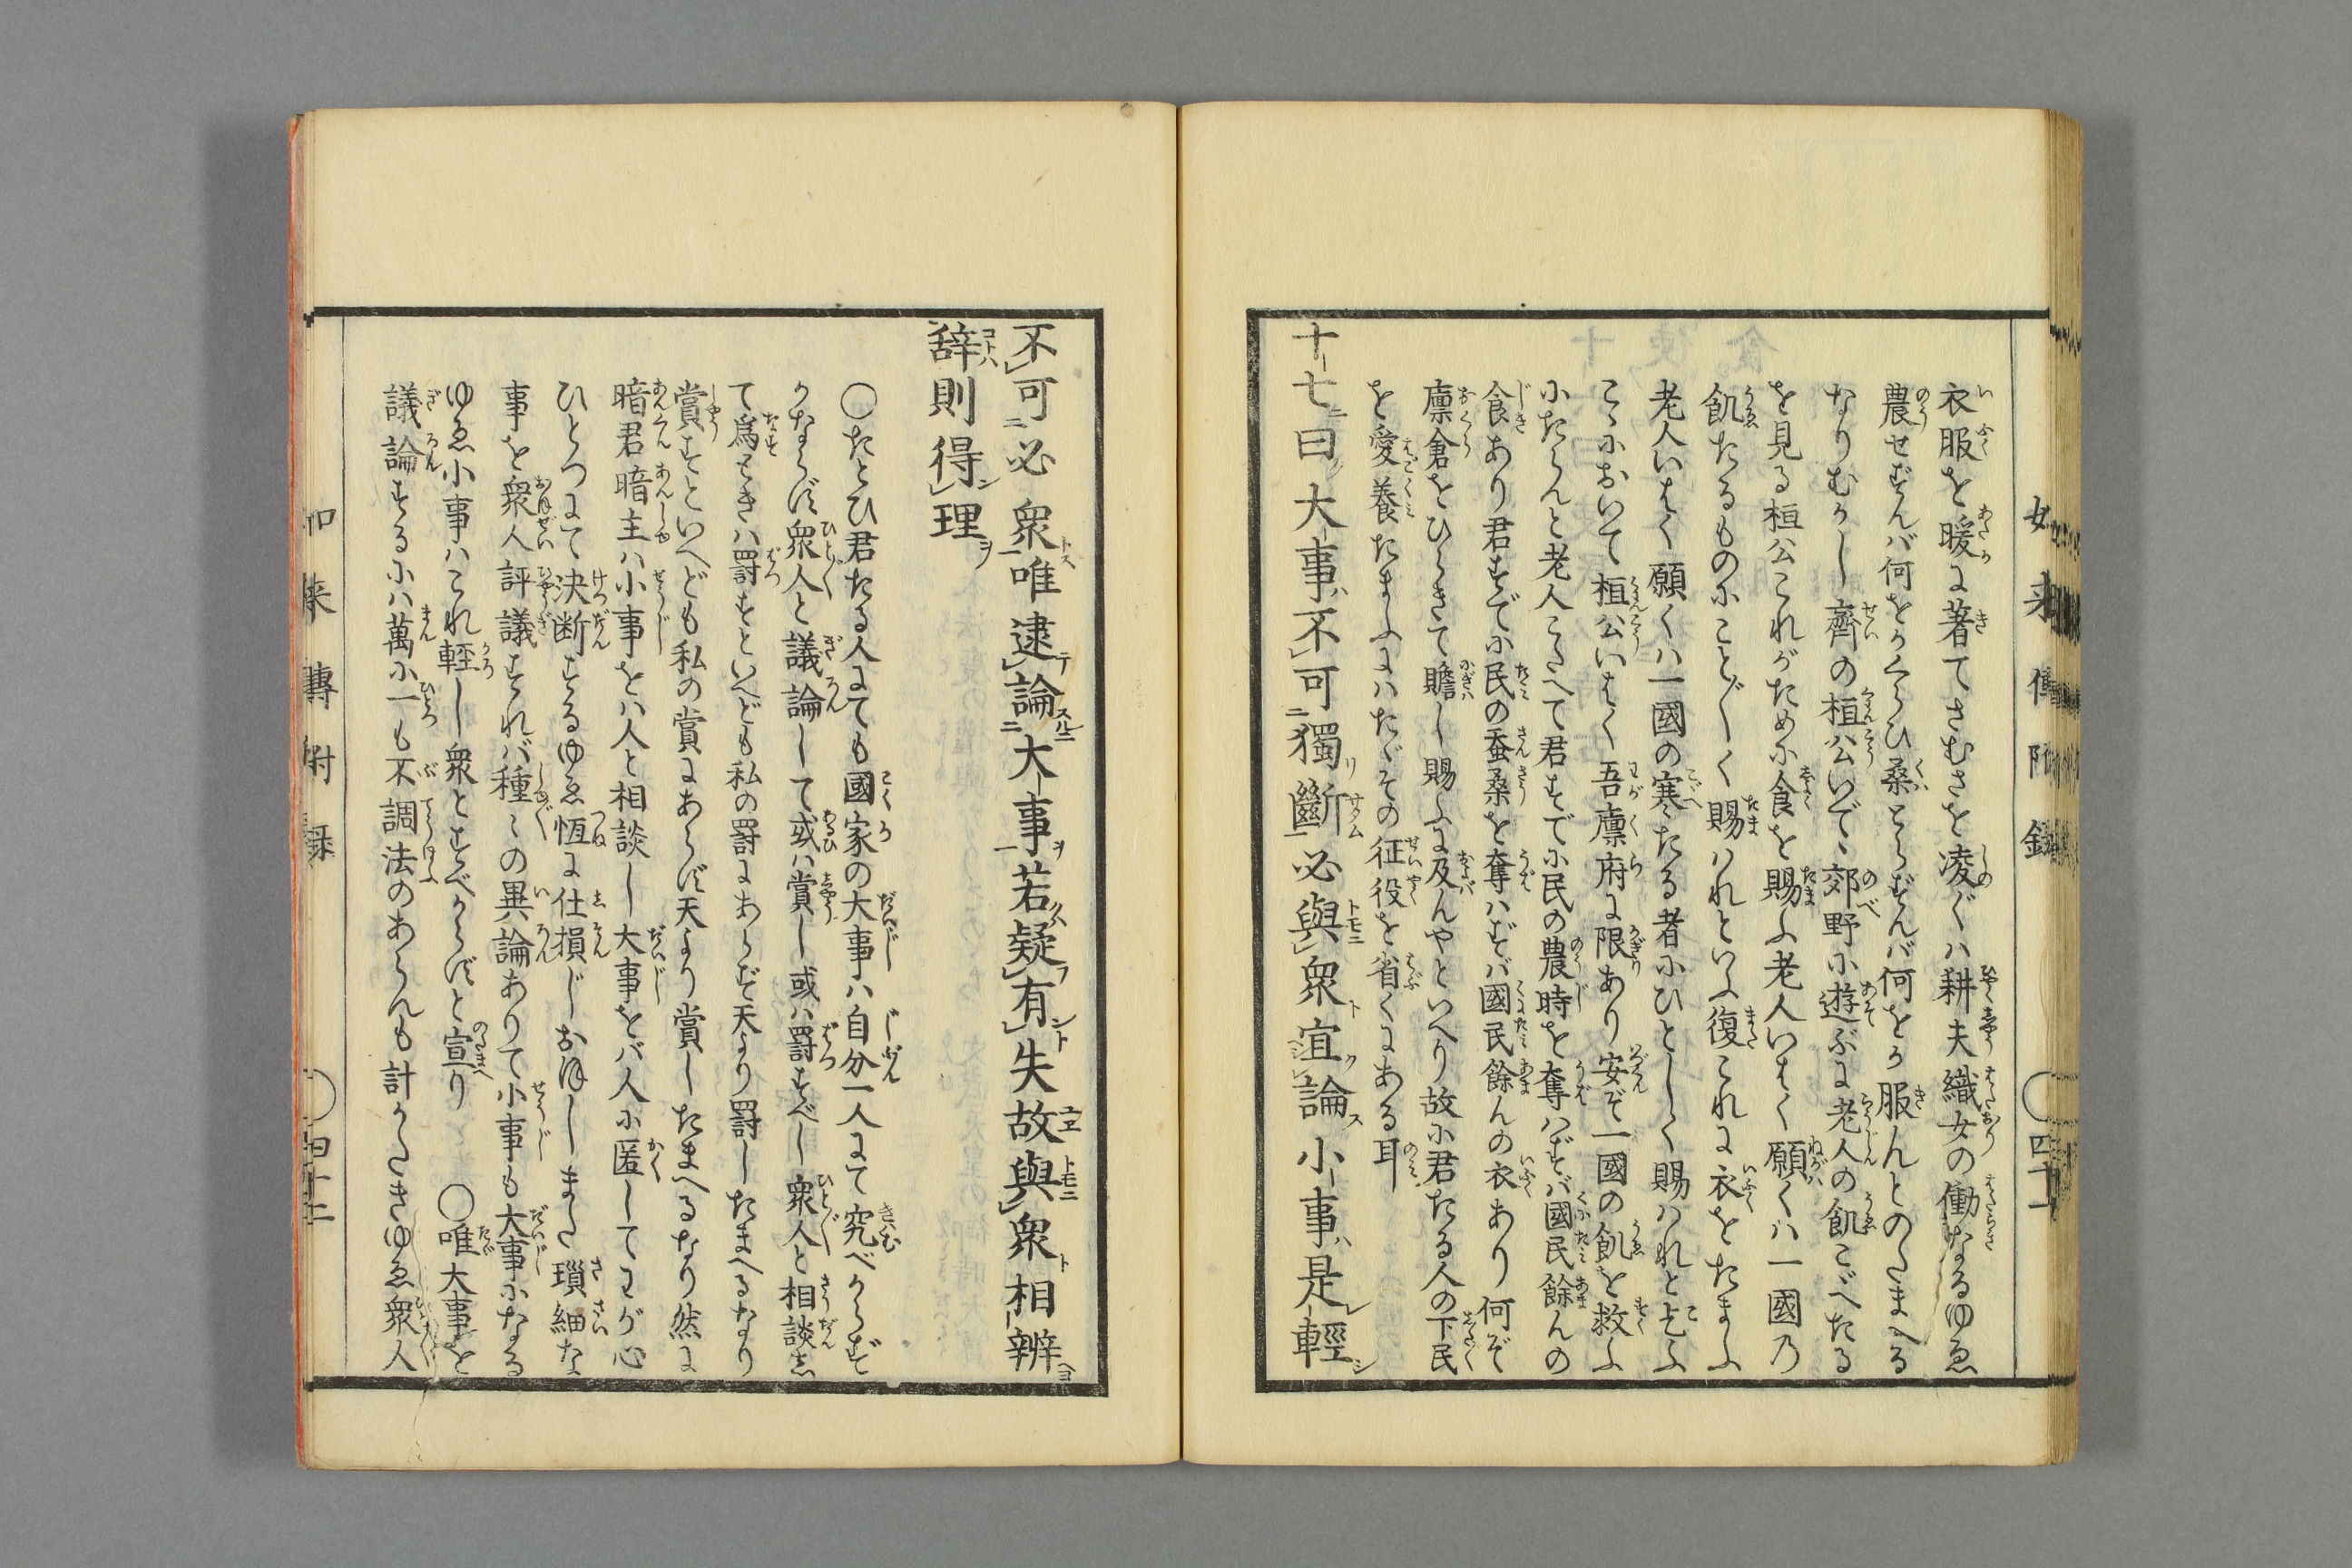 衣服を暖に著てさむさを凌ぐハ耕夫織女の働なるゆゑ
農せずんバ何をかくらひ桑とらずんバ何をか服んとのたまへる
なりむかし齊の桓公いで〻郊野に遊ぶに老人の飢こゞへたる
を見る桓公これがために食を賜ふ老人いはく願くハ一國乃
飢たるものにこと〴〵く賜ハれといふ復これに衣をたまふ
老人いはく願くハ一國の寒たる者にひとしく賜ハれと乞ふ
こゝにおいて桓公いはく吾廩府に限あり安ぞ一國の飢を救ふ
にたらんと老人こたへて君すでに民の農時を奪ハずバ國民餘んの
食あり君すでに民の蚕桑を奪ハずバ國民餘んの衣あり何ぞ
廩倉をひらきて贍し賜ふに及んやといへり故に君たる人の下民
を愛養たまふにハたゞその征役を省くにある耳
十七曰大事不可獨斷必與衆宜論小事是輕
如来傳附録
四十一
不可必衆唯逮論大事若疑有失故與衆相辨
辞則得理
〇たとひ君たる人にても國家の大事ハ自分一人にて究べからず
かならず衆人と議論して或ハ賞し或ハ罸すべし衆人と相談志
て爲ときハ罸すといへども私の罸にあらず天より罸したまへるなり
賞すといへども私の賞にあらず天より賞したまへるなり然に
暗君暗主ハ小事をハ人と相談し大事をバ人に匿してわが心
ひとつにて決断するゆゑ恆に仕損じおほしまた瑣細な
事を衆人評議すれバ種〻の異論ありて小事も大事になる
ゆゑ小事ハこれ輕し衆とすべからずと宣り 〇唯大事を
議論するにハ萬に一も不調法のあらんも計かたきゆゑ衆人
如来傳附録
四十二